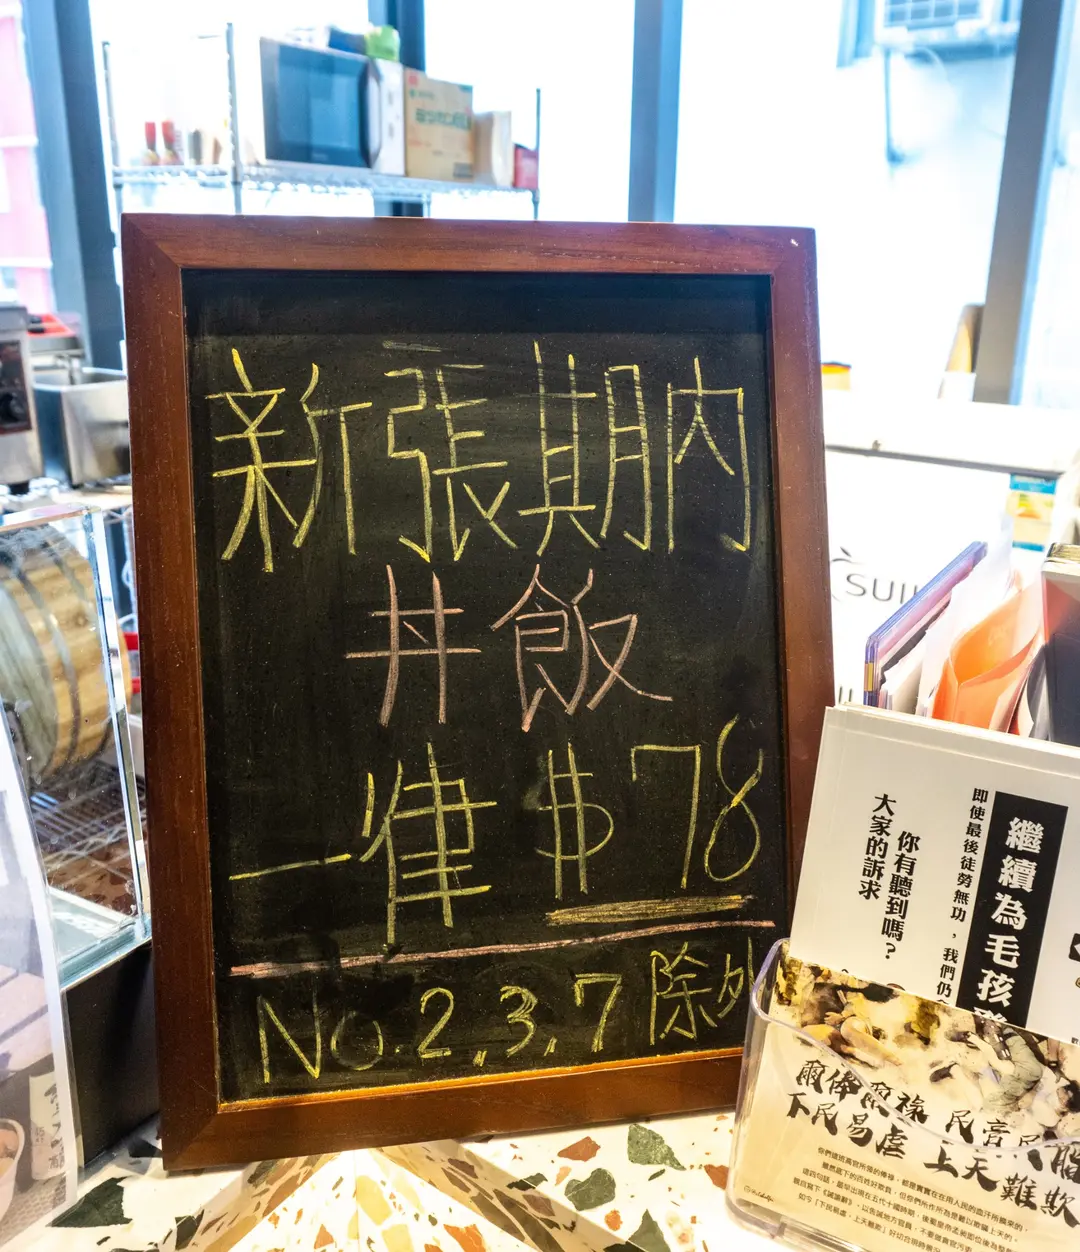 新張期內
丼飯
一律 $78
No. 2, 3, 7 除外
SUI
繼續為毛孩
即使最後徒勞無功，我們仍
你有聽到嗎？
大家的訴求
爾俸爾祿 民膏民脂
下民易虐 上天難欺